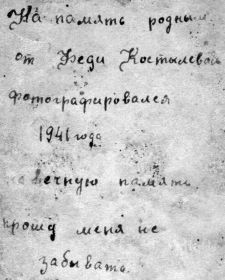 На память родным
от Феди Костылевой
фотографировался
1941 года
на вечную память
прошу меня не
забывать.